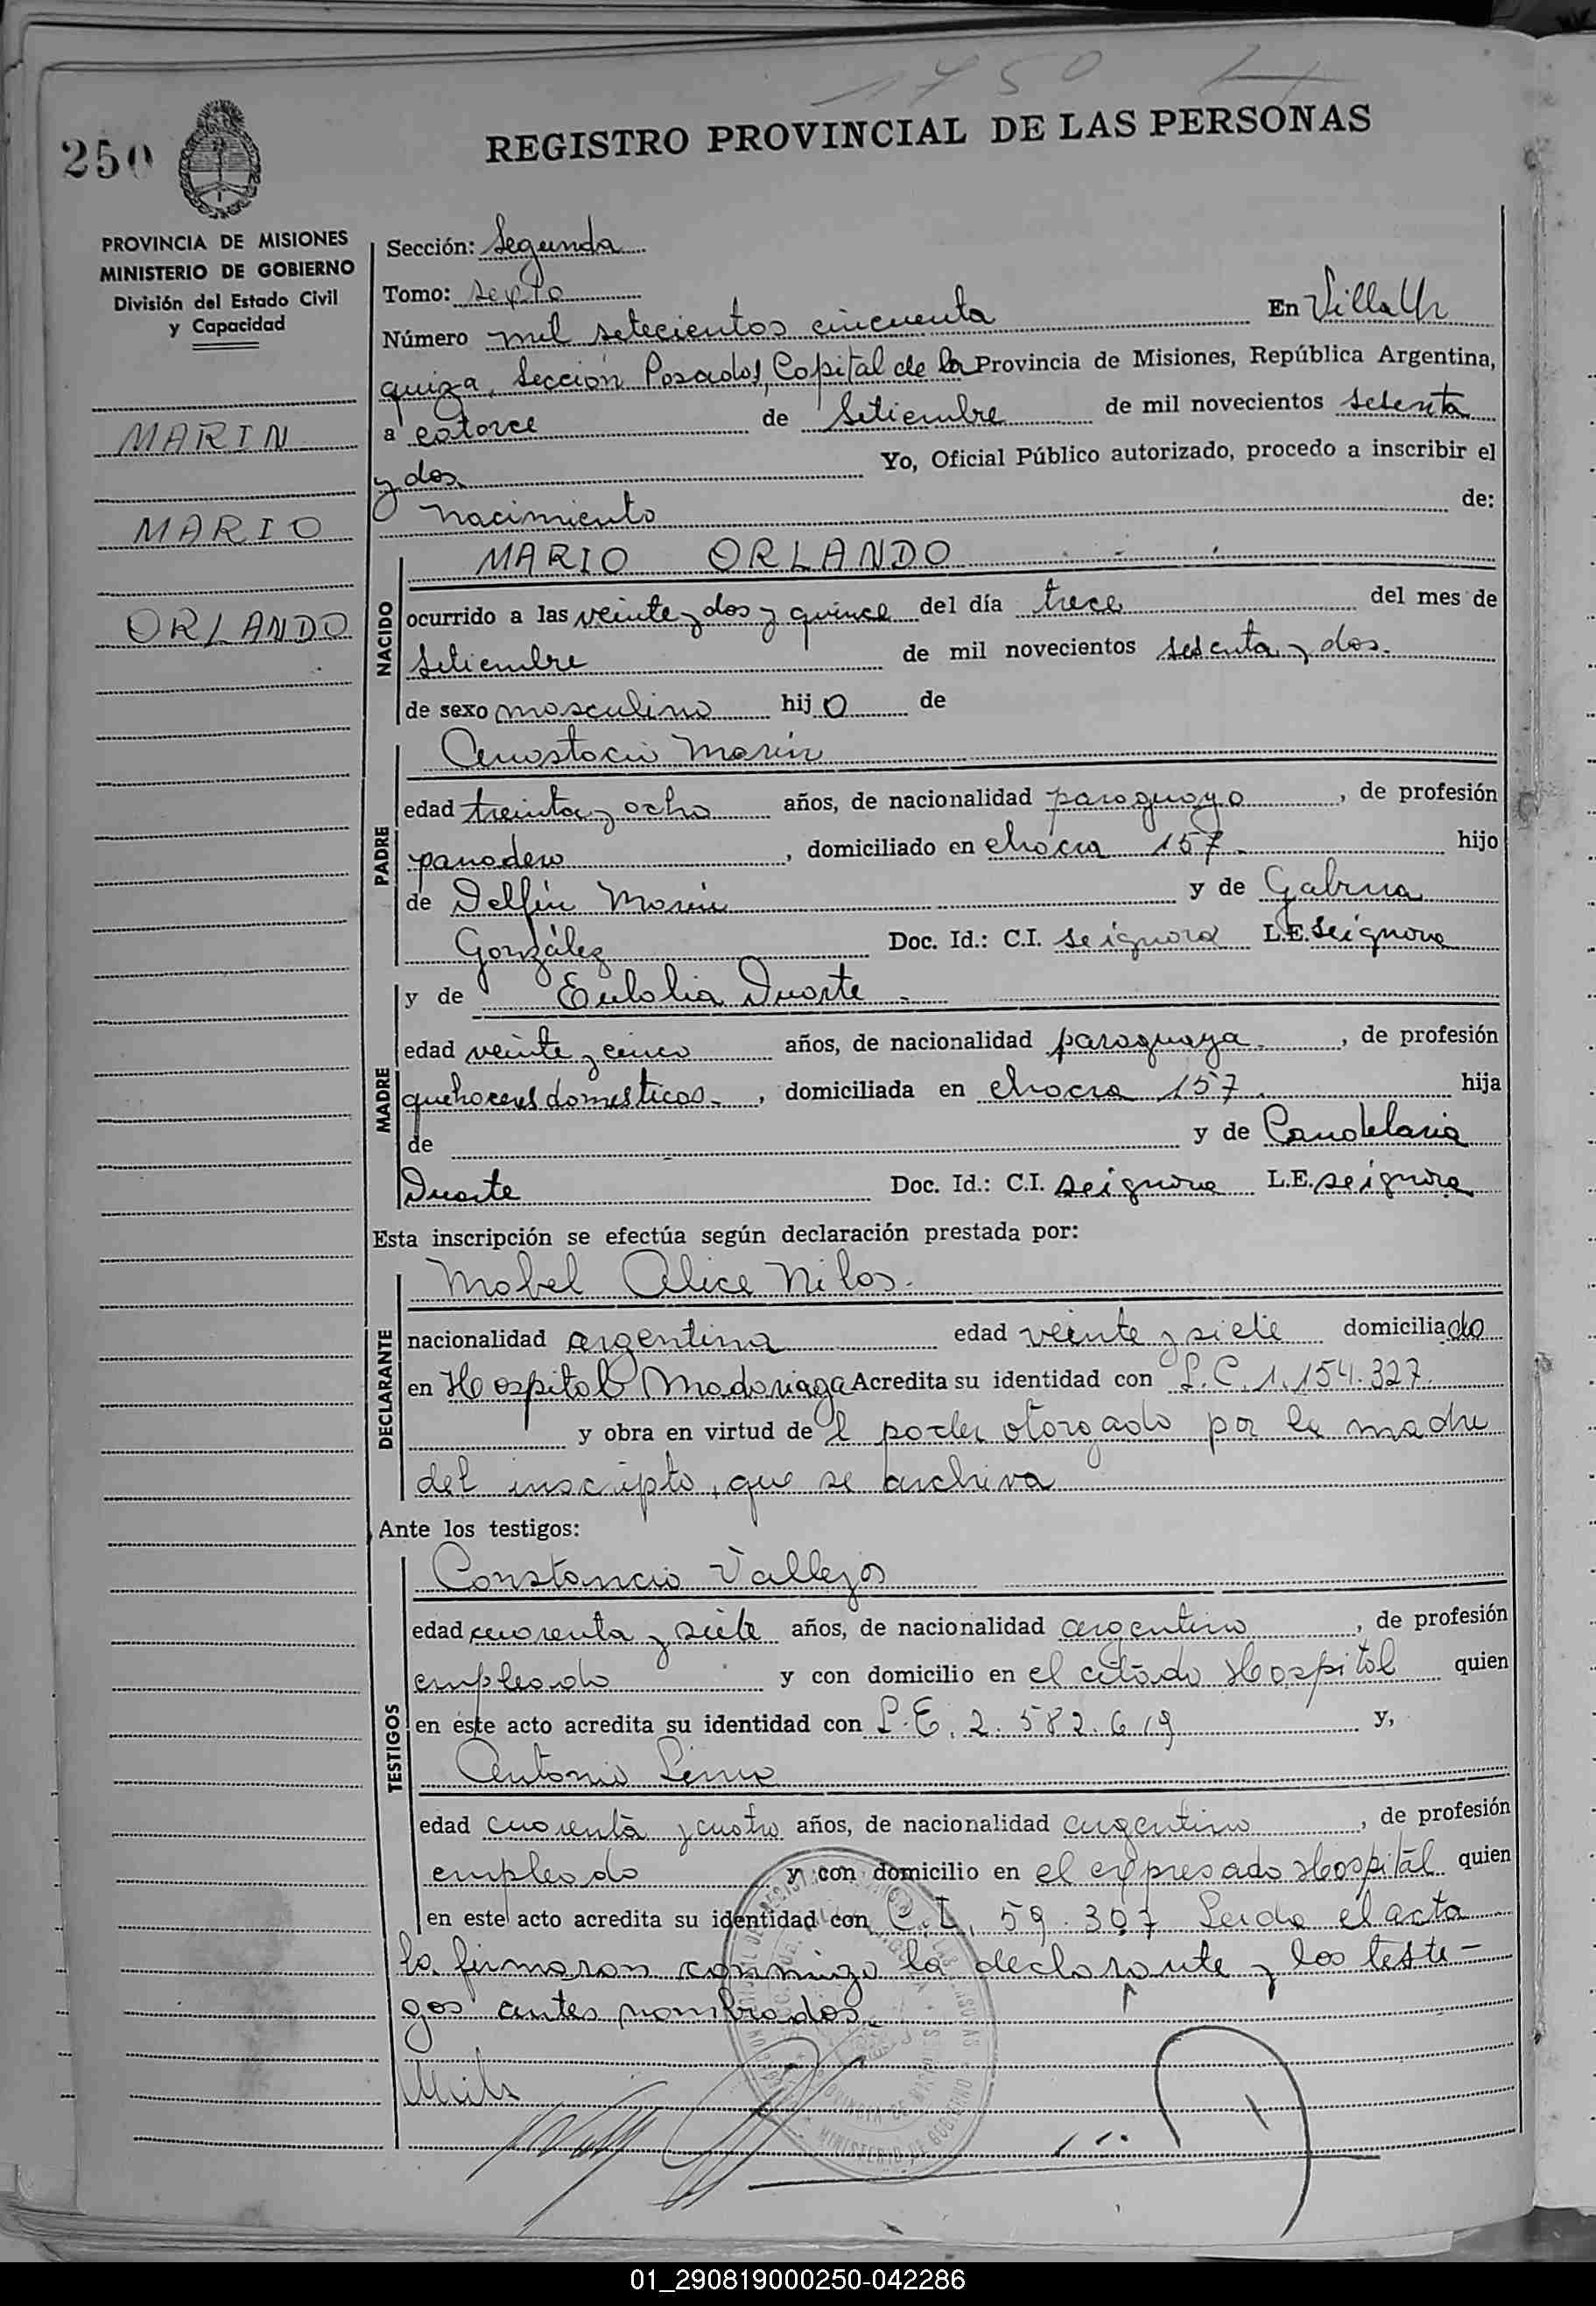 1750
250
REGISTRO PROVINCIAL DE LAS PERSONAS
PROVINCIA DE MISIONES
MINISTERIO DE GOBIERNO
División del Estado Civil
y Capacidad
MARIN
MARIO
ORLANDO
Sección: Segunda
Tomo: sexto
Número mil setecientos cincuenta En Villa Ur
quiza, Sección Posadas, Capital de la Provincia de Misiones, República Argentina,
a catorce de Setiembre de mil novecientos setenta
y dos Yo, Oficial Público autorizado, procedo a inscribir el
nacimiento de:
NACIDO
MARIO ORLANDO
ocurrido a las veinte y dos y quince del día trece del mes de
Setiembre de mil novecientos setenta y dos.
de sexo masculino hijo de
PADRE
Anastacio Marin
edad treinta y ocho años, de nacionalidad paraguayo, de profesión
panadero, domiciliado en chacra 157. hijo
de Delfín Marin y de Gabina
González Doc. Id.: C.I. se ignora L.E. se ignora
MADRE
y de Eulalia Duarte
edad veinte y cinco años, de nacionalidad paraguaya, de profesión
quehaceres domesticos, domiciliada en chacra 157. hija
de y de Candelaria
Duarte Doc. Id.: C.I. se ignora L.E. se ignora
Esta inscripción se efectúa según declaración prestada por:
DECLARANTE
Mabel Alice Nilos.
nacionalidad argentina edad veinte y siete domiciliado
en Hospital Madariaga Acredita su identidad con L.C. 1.154.327.
y obra en virtud de l poder otorgado por la madre
del inscripto, que se archiva
Ante los testigos:
TESTIGOS
Constancio Vallejos
edad cuarenta y siete años, de nacionalidad argentino, de profesión
empleado y con domicilio en el citado Hospital quien
en este acto acredita su identidad con L.E. 2.582.619 y,
Antonio
edad cuarenta y cuatro años, de nacionalidad argentino, de profesión
empleado y con domicilio en el expresado Hospital quien
en este acto acredita su identidad con C.I. 59.307 Leida el acta
la firmaron conmigo la declarante y los testi-
gos antes nombrados.
MINISTERIO DE GOBIERNO
01_290819000250-042286